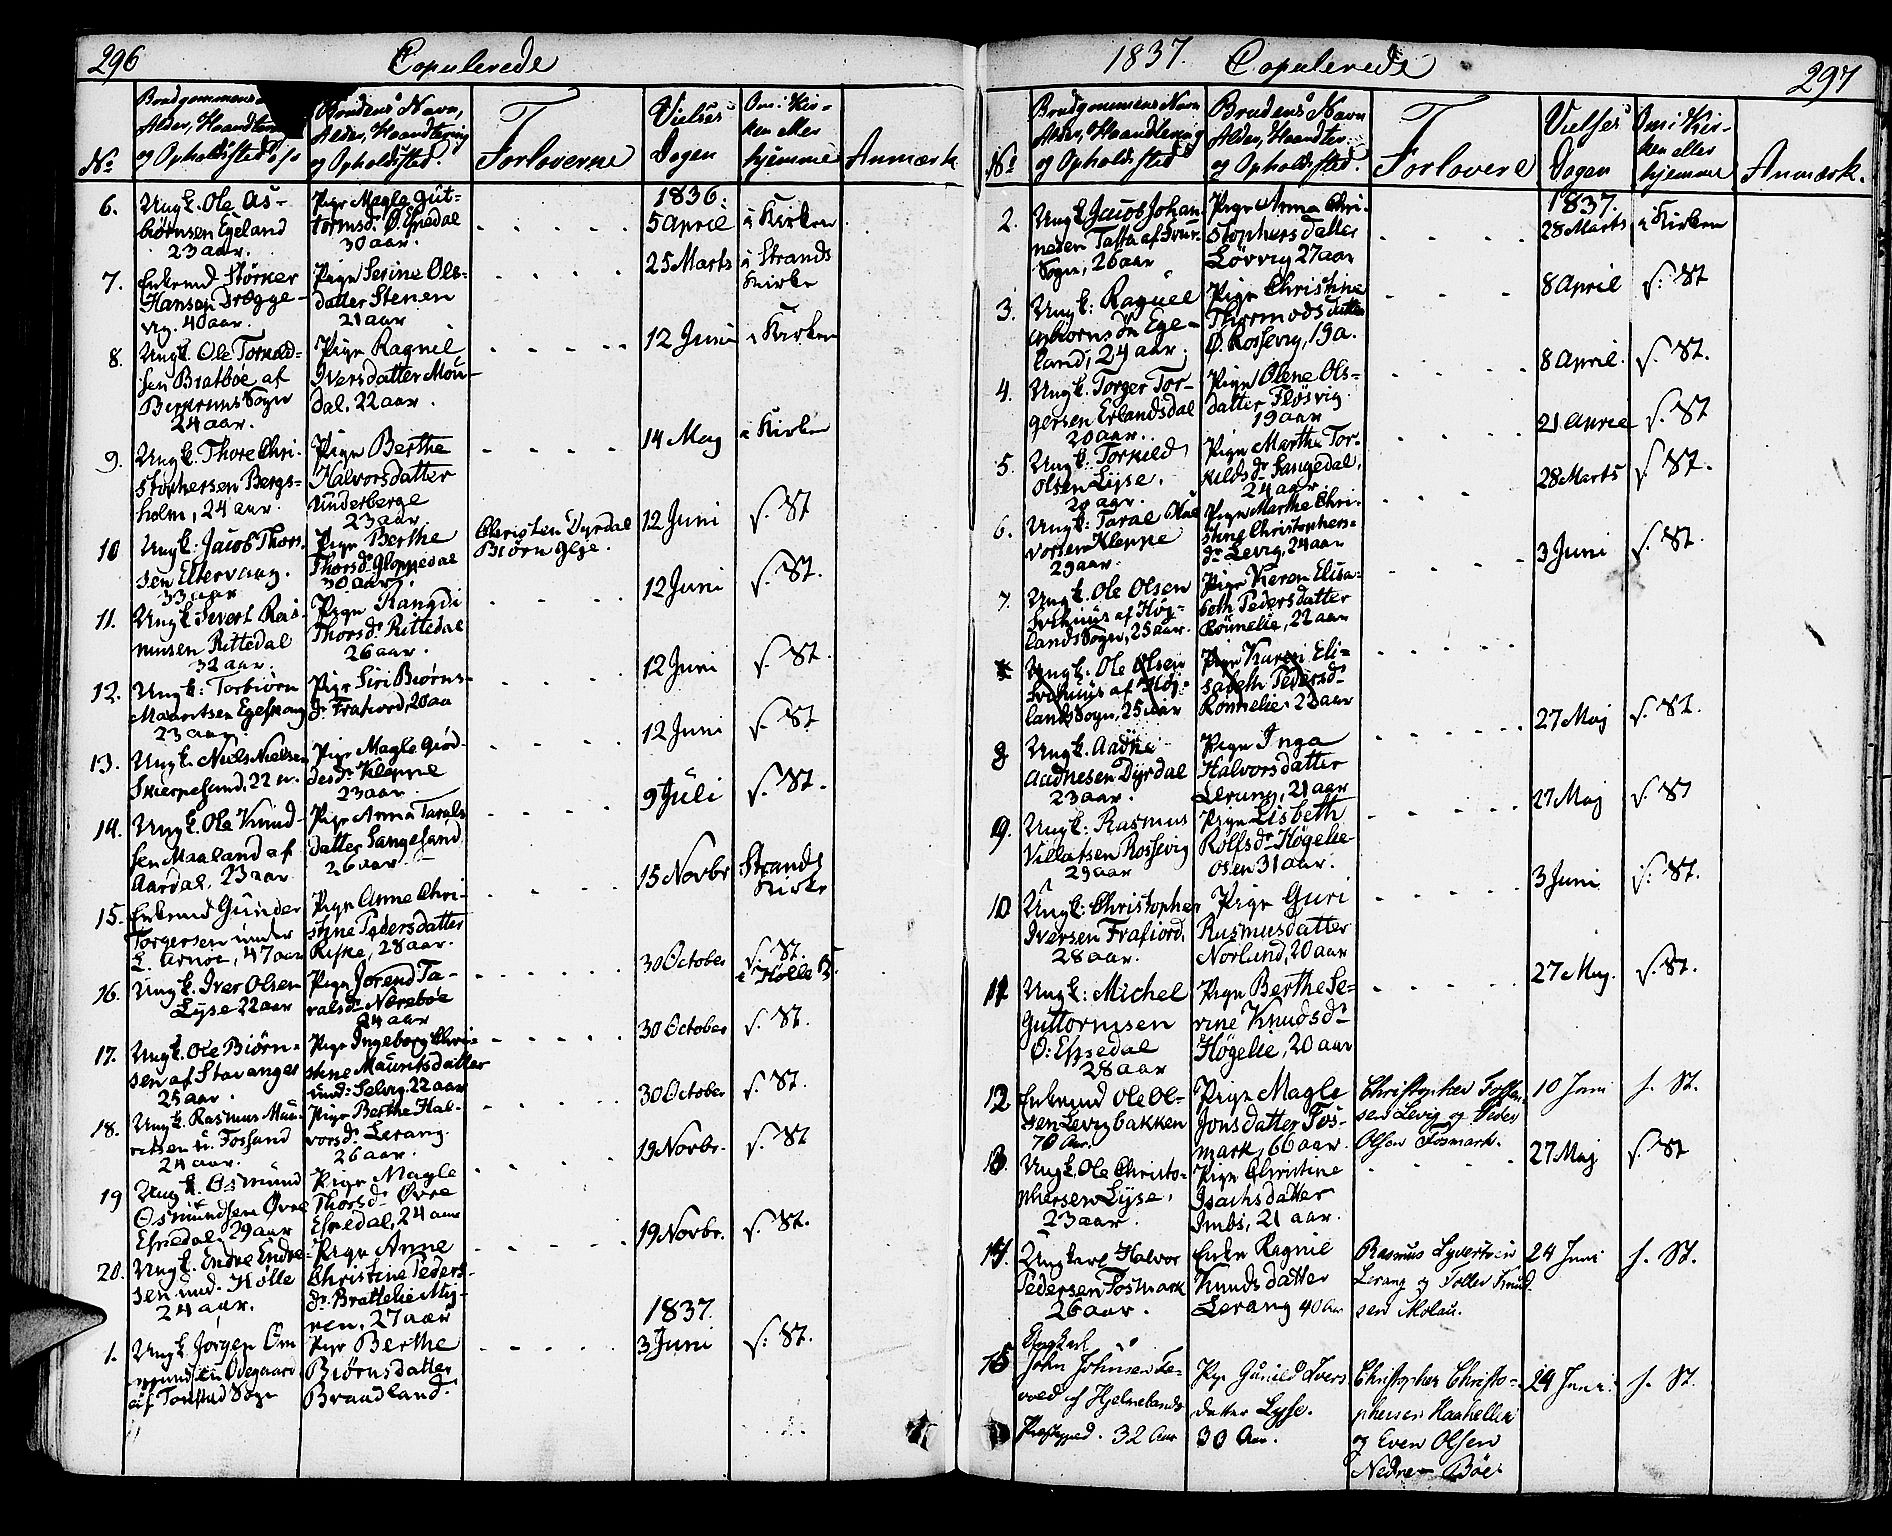 296
Copulerede
No
Brudgommens
Alder, Haandtering
og Opholdssted
Brudens Navn,
Alder, Haandtering
og Opholdsted.
Forloverne
Vielses
Dagen
Om i Kir-
ken eller
hjemme
Anmærk
1836.
6.
Ungk. Ole As-
biørnsen Egeland
23 aar.
Pige Magle Gut-
tormsd. Ø. Espedal
30 aar.
5 April
i Kirken
7.
Enkemd Størker
Hansen Drægge-
vig. 40 aar.
Pige Serine Ols-
datter Stenen
21 aar
25 Marts
i Strands
Kirke
8.
Ungk. Ole Torkild-
sen Bratbøe af
Bierkrims Sogn
24 aar.
Pige Ragnil
Iversdatter Mou-
dal. 22 aar.
12 Juni
i Kirken
9.
Ungk. Thore Chri-
stophersen Bergs-
holm, 24 aar.
Pige Berthe
Halvorsdatter
Underberge
23 aar
14 May
i Kirken
10
Ungk: Jacob Thors-
sen Eltervaag.
33 aar
Pige Berthe
Thorsdr Gloppedal
30 aar.
Christen Dyrdal
Biørn Gije.
12 Juni
s. St
11.
Ungk. Sivert Ras-
musen Rettedal
32 aar.
Pige Rangdi
Thorsdr Rettedal
26 aar.
12 Juni
s. St.
12.
Ungk: Torbiørn
Mauritsen Egeskaag
23 aar
Pige Siri Biørns-
dr Frafiord, 20 aa
12 Juni
s. St.
13.
Ungk. Niels Nielsen
Skierpesund, 22 a.
Pige Magle Giød-
desdr Kleppe
23 aar.
12 Juni
s. St
14.
Ungk. Ole Knud-
sen Maaland af
Aardal, 23 aar
Pige Anna Tarals-
datter Langesand
26 aar
9 Juli
s. St.
15.
Enkemd Gunder
Torgersen under
L. Arnøe, 47 aar
Pige Anne Chri-
stine Pedersdatter
Riske, 28 aar.
15 Novbr
Strands
Kirke
16.
Ungk. Iver Olsen
Lyse 22 aar
Pige Jorend Ta-
ralsdr Nerebøe
24 aar
30 October
s. St.
i Hølle K.
17.
Ungk. Ole Biørn-
sen af Stavanger
25 aar.
Pige Ingeborg Chri-
stine Mauritsdatter
und: Selvig. 22 aar
30 October
s. St.
18.
Ungk. Rasmus Mau-
ritsen u. Fossand
24 aar.
Pige Berthe Hal-
vorsdr Lerang.
26 aar.
30 October
s. St.
19
Ungk. Osmund
Osmundsen Øvre
Espedal, 29 aar
Pige Magle
Thorsdr Øvre
Espedal, 24 aar
19 Novbr.
s. St
20.
Ungk. Endre Endre-
sen und. Hølle
24 aar.
Pige Anne
Christine Peders-
dr Brattelie Miy-
ren, 27 aar
19 Novbr.
s. St.
1837.
1.
Ungk. Jørgen Om-
mundsen Ødegaard
af Tonstad Sogn
Pige Berthe
Biørnsdatter
Braadland.
3 Juni
s. St.
1837. Copulerede
297
No
Brudgommens Navn
Alder, Haandtering
og Opholdssted
Brudens Navn
Alder, Haandter-
og Opholdssted.
Forlovere
Vielses
Dagen
Om i Kir-
ken eller
hjemme
Anmærk.
1837.
2.
Ungk. Jacob Johan-
nesen Tafta af
Sogn, 26 aar
Pige Anna Chri-
stophersdatter
Løvvig 27 aar
28 Marts
i Kirken
3.
Ungk: Raguel
Asbiørnsøn Ege-
land, 24 aar,
Pige Christine
Thormodsdatter
Ø. Rossevig, 19 a.
8 April
s: St
4.
Ungk. Torger Tor-
gersen Erlandsdal
20 aar.
Pige Olene Ols-
datter Fløsvig.
19 aar
8 April.
s. St.
5.
Ungk: Torkild
Olsen Lyse.
20 aar.
Pige Marthe Tor-
kildsdr Sangedal,
24 aar.
21 April
s. St
6.
Ungk: Taral Hal-
vorsen Kleppe
29 aar.
Pige Marthe Chri-
stine Christophers-
dr Levig, 24 aar
28 Marts
s. St.
7.
Ungk. Ole Olsen
af Høg-
lands Sogn, 25 aar.
Pige Karen Elisa-
beth Pedersdatter
Rønnelie, 22 aar
3 Juni
s. St.
Ungk. Ole Olsen
af Høg-
lands Sogn, 25 aar
Pige Karen Eli-
sabeth Pedersdr
Rønnelie 22 aar
8
Ungk. Aadne
Aadnesen Dyrdal
23 aar.
Pige Inga
Halvorsdatter
Lerang, 21 aar
27 Maj
s. St.
9.
Ungk: Rasmus
Villatsen Rossevig
29 aar
Pige Lisbeth
Rolfsdr Høgelie-
osen 31 aar.
27 Maj
s. St
10
Ungk: Christopher
Iversen Frafiord.
28 aar.
Pige Guri
Rasmusdatter
Norland, 20 aar
3 Juni
s: St.
11.
Ungk: Michel
Guttormsen
Ø: Espedal
28 aar
Pige Berthe Se-
rine Knudsdr
Høgelie, 20 aar
27 Maj.
s. St.
12
Enkemd Ole Ol-
sen Levigbakken
70 Aar.
Pige Magle
Jonsdatter Fos-
mark, 66 aar
Christopher Tolle-
sen Levig og Peder
Olsen Fosmark.
10 Juni
s. St.
13.
Ungk. Ole Christo-
phersen Lyse,
23 aar.
Pige Christine
Isachsdatter
Imbs, 21 aar.
27 Maj
s. St
14.
Ungkarl Halvor
Pedersen Fosmark
26 aar.
Enke Ragnil
Knudsdatter
Lerang 40 Aar
Rasmus Syvertsen
Lerang og Toller Knud-
sen Molau.
24 Juni
s. St.
15
Ungkarl
John Johnsen Te-
af Hjelmelands
Præstegjed. 32 Aar
Pige Gunild Ivers-
datter Lyse.
30 Aar.
Christopher Christo-
phersen Haahelleri
og Even Olsen
Nedre Bøe.
24 Juni.
s. St.